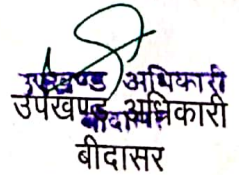 उपखण्ड अधिकारी
उपखण्ड अधिकारी
बीदासर